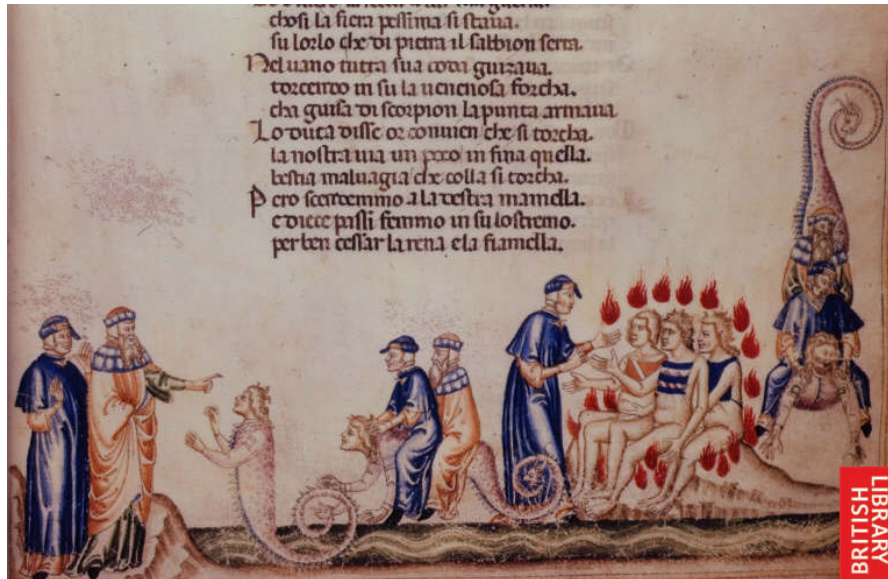 chosi la fiera pessima si staua.
su lorlo che di pietra il sabbion serra.
Nel uano tutta sua coda guizaua.
torcendo in su la uenenosa forcha.
cha guisa di scorpion la punta armaua
Lo duca disse or conuien che si torcha.
la nostra uia un poco in fina quella.
bestia maluagia che colla si corcha.
Pero scendemmo a la destra mamella.
e diece passi femmo in su lostremo.
per ben cessar la rena e la fiamella.
BRITISH
LIBRARY